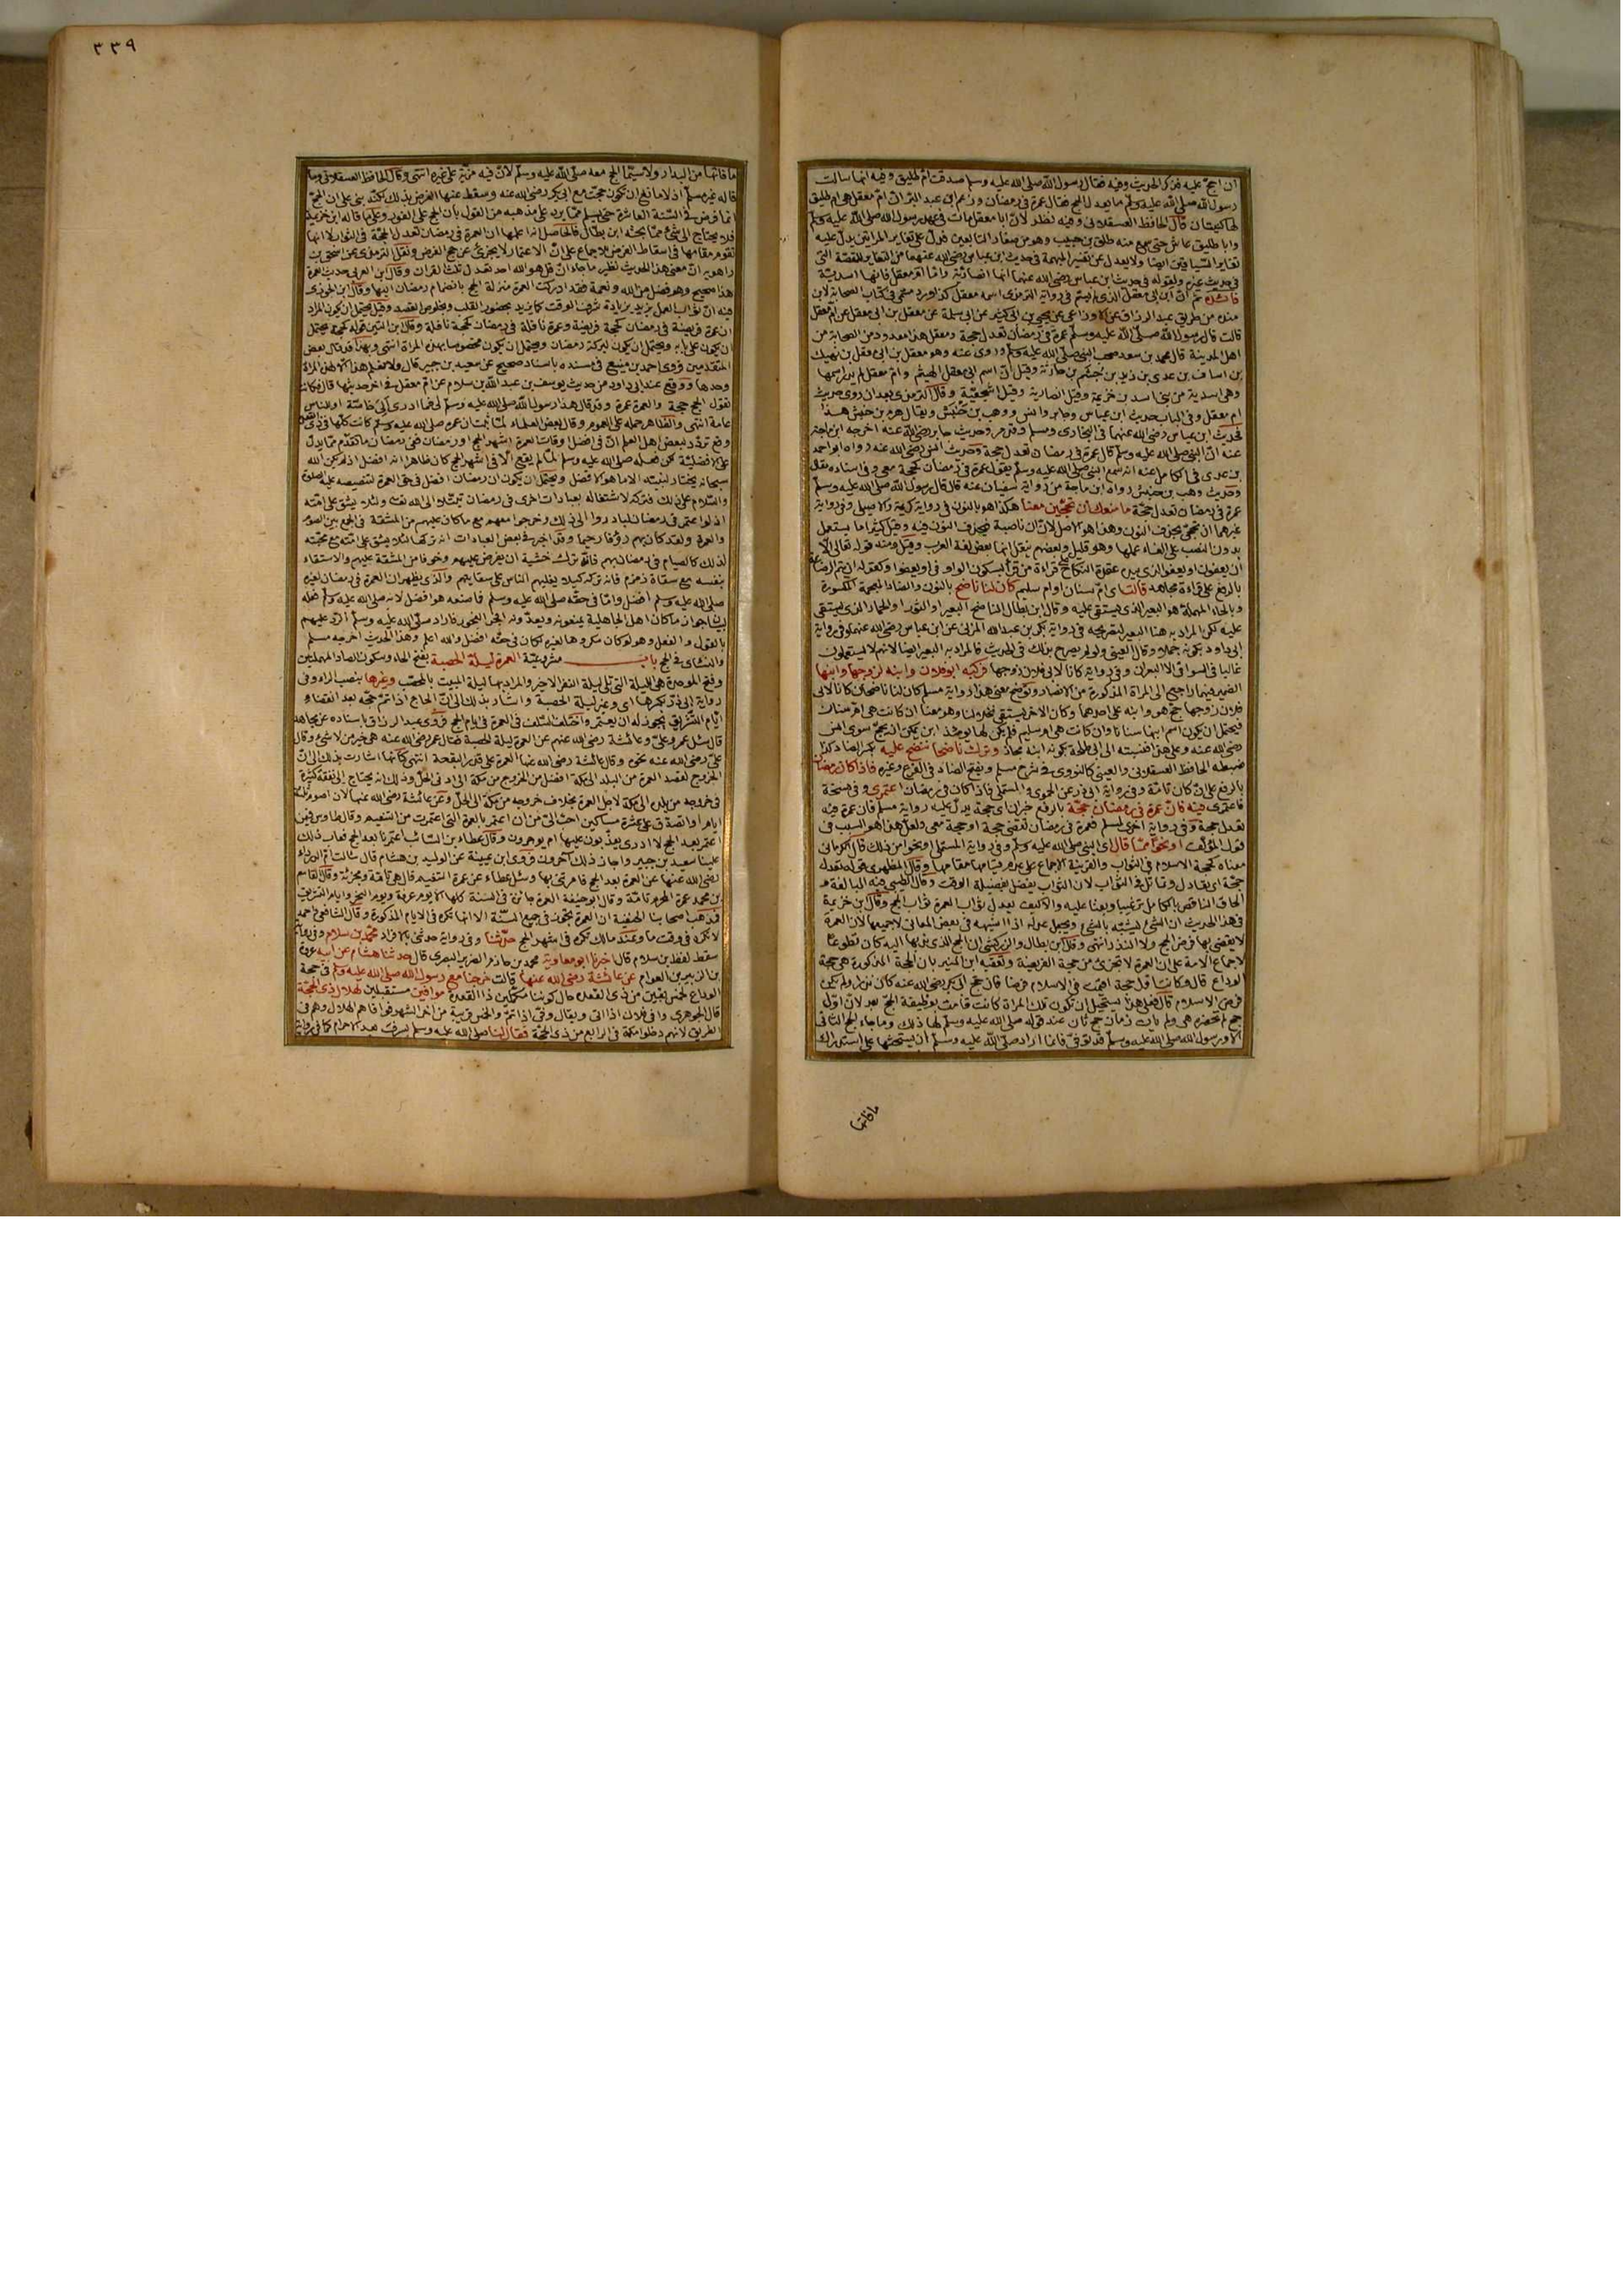 ان احج عليه فذكر الحديث وفيه فقال رسول الله صلى الله عليه وسلم صدقت ام طليق وفيه انها سالت
رسول الله صلى الله عليه وسلم ما يعدل الحج فقال عمرة في رمضان وزعم ابن عبد البر ان ام معقل هي ام طليق
لها كنيتان قال الحافظ العسقلاني وفيه نظر لان ابا معقل مات في عهد رسول الله صلى الله عليه وسلم
وابا طليق عاش حتى سمع منه طلق بن حبيب وهو من صغار التابعين فدل على تغاير المراتين يدل عليه
تغاير السياقين ايضا ولا يعدل عن تفسير المبهمة في حديث ابن عباس رضي الله عنهما
في حديث غيره ولقوله في حديث ابن عباس رضي الله عنهما انها انصارية واما ام معقل فانها اسدية
منده من طريق عبد الرزاق عن الاوزاعي عن يحيى بن ابي كثير عن ابي سلمة عن معقل بن ابي معقل عن ام معقل
قالت قال رسول الله صلى الله عليه وسلم عمرة في رمضان تعدل حجة ومعقل هذا معدود من الصحابة من
اهل المدينة قال محمد بن سعد صحب النبي صلى الله عليه وسلم وروى عنه وهو معقل بن ابي معقل بن نهيك
بن اساف بن عدي بن زيد بن جشم بن حارثة وقيل ان اسم ابي معقل الهيثم وام معقل لم يدر اسمها
وهي اسدية من بني اسد بن خزيمة وقيل انصارية وقيل اشجعية وقال الترمذي بعد ان روى حديث
ام معقل وفي الباب حديث ابن عباس وجابر وانس ووهب بن خنبش ويقال هرم بن خنبش هذا
فحديث ابن عباس رضي الله عنهما في البخاري ومسلم وقد مر وحديث جابر رضي الله عنه اخرجه ابن ماجة
عنه ان النبي صلى الله عليه وسلم قال عمرة في رمضان تعدل حجة وحديث انس رضي الله عنه رواه ابو احمد
بن عدي في الكامل عنه انه سمع النبي صلى الله عليه وسلم يقول عمرة في رمضان كحجة معي وفي اسناده مقال
وحديث وهب بن خنبش رواه ابن ماجة من رواية سفيان عنه قال قال رسول الله صلى الله عليه وسلم
عمرة في رمضان تعدل حجة ما منعك ان تحجين معنا هكذا هو بالنون في رواية كريمة والاصيلي وفي رواية
غيرهما ان تحجي بحذف النون وهذا هو الاصل لان ان ناصبة فتحذف النون فيه وقيل كثيرا ما يستعمل
بدون النصب على الغاء عملها وهو قليل وبعضهم ينقل انها بعض لغة العرب ومنه قوله تعالى الا
ان يعفون او يعفو الذي بيده عقدة النكاح
بالرفع على قراءة مجاهد قالت اي ام سنان او ام سليم كان لنا ناضح بالنون والضاد المعجمة المكسورة
وبالحاء المهملة هو البعير الذي يستقى عليه وقال ابن بطال الناضح البعير او الثور او الحمار الذي يستقى
عليه لكن المراد به هنا البعير لتصريحه في رواية بكر بن عبد الله المزني عن ابن عباس رضي الله عنهما وفي رواية
ابي داود بكونه جملا وقال العيني ولو لم يصرح بذلك في الحديث فالمراد به البعير ايضا لانهم لا يستعملون
غالبا في السواقي الا البعران وفي رواية كانا لابي فلان زوجها فركبه ابو فلان وابنه لزوجها وابنها
الضمير فيهما راجع الى المراة المذكورة من الانصار وتوضح معنى هذا رواية مسلم كان لنا ناضحان كانا لابي
فلان زوجها حج هو وابنه على احدهما وكان الاخر يستقي نخلا لنا
فيحتمل ان يكون اسم ابنها سنانا وان كانت هي ام سليم فلم يكن لها يومئذ ابن يمكن ان يحج سوى انس
رضي الله عنه وعلى هذا فنسبته الى ابي طلحة بكونه ابنه مجاز وترك ناضحا ننضح عليه بكسر الضاد كذا
ضبطه الحافظ العسقلاني والعيني كالنووي في شرح مسلم وبفتح الضاد في الفرع وغيره فاذا كان رمضان
بالرفع على ان كان تامة وفي رواية ابي ذر عن الحموي والمستملي فاذا كان في رمضان اعتمري وفي نسخة
فاعتمري فيه فان عمرة في رمضان حجة بالرفع خبر ان اي كحجة يدل عليه رواية مسلم فان عمرة فيه
تعدل حجة وفي رواية اخرى لمسلم فعمرة في رمضان تقضي حجة او حجة معي ولعل هذا هو السبب في
قول المؤلف او نحوا مما قال اي النبي صلى الله عليه وسلم وفي رواية المستملي او نحوا من ذلك قال الكرماني
معناه كحجة الاسلام في الثواب والقرينة الاجماع على عدم قيامها مقامها وقال المظهري في قوله تعدل
حجة اي تقابل وتماثل في الثواب لان الثواب يفضل بفضيلة الوقت وقال الطيبي هذا من المبالغة و
الحاق الناقص بالكامل ترغيبا وبعثا عليه والا كيف يعدل ثواب العمرة ثواب الحج وقال ابن خزيمة
في هذا الحديث ان الشئ يشبه بالشئ ويجعل عدله اذا اشبهه في بعض المعاني لا جميعها لان العمرة
لا يقضى بها فرض الحج ولا النذر انتهى وقال ابن بطال والزركشي ان الحج الذي ندبها اليه كان تطوعا
لاجماع الامة على ان العمرة لا تجزئ من حجة الفريضة وتعقبه ابن المنير بان الحجة المذكورة هي حجة
الوداع قال وكانت اول حجة اقيمت في الاسلام فرضا فان حج ابي بكر رضي الله عنه كان نذرا ولم يكن
فرض الاسلام قال فعلى هذا يستحيل ان تكون تلك المراة كانت قامت بوظيفة الحج بعد لان اول
حج لم تحضره هي ولم يات زمان حج ثان عند قوله صلى الله عليه وسلم لها ذلك وما جاء الحج الثاني
الا ورسول الله صلى الله عليه وسلم قد توفي فانما اراد صلى الله عليه وسلم ان يستحثها على استدراك
ما فاتها
٣٣٩
ما فاتها من البدار ولا سيما الحج معه صلى الله عليه وسلم لان فيه مزية على غيره انتهى وقال الحافظ العسقلاني وما
قاله غير مسلم اذ لا مانع ان تكون حجت مع ابي بكر رضي الله عنه وسقط عنها الفرض بذلك لكنه بنى على ان الحج
انما فرض في السنة العاشرة حتى يسلم مما يرد على مذهبه من القول بان الحج على الفور وعلى ما قاله ابن خزيمة
فلا يحتاج الى شئ مما بحثه ابن بطال فالحاصل انه اعلمها ان العمرة في رمضان تعدل الحجة في الثواب لا انها
تقوم مقامها في اسقاط الفرض للاجماع على ان الاعتمار لا يجزئ عن حج الفرض ونقل الترمذي عن اسحق بن
راهويه ان معنى هذا الحديث نظير ما جاء ان قل هو الله احد تعدل ثلث القران وقال ابن العربي حديث العمرة
هذا صحيح وهو فضل من الله ونعمة فقد ادركت العمرة منزلة الحج بانضمام رمضان اليها وقال ابن الجوزي
فيه ان ثواب العمل يزيد بزيادة شرف الوقت كما يزيد بحضور القلب وخلوص القصد وقيل يحتمل ان يكون المراد
ان عمرة فريضة في رمضان كحجة فريضة وعمرة نافلة في رمضان كحجة نافلة وقال ابن التين قوله كحجة يحتمل
ان يكون على بابه ويحتمل ان يكون لبركة رمضان ويحتمل ان يكون مخصوصا بهذه المراة انتهى وبهذا قد قال بعض
المتقدمين فروى احمد بن منيع في مسنده باسناد صحيح عن سعيد بن جبير قال ولا نعلم هذا الا لهذه المراة
وحدها ووقع عند ابي داود من حديث يوسف بن عبد الله بن سلام عن ام معقل في اخر حديثها قال فكانت
تقول الحج حجة والعمرة عمرة وقد قال هذا رسول الله صلى الله عليه وسلم لي فما ادري ألي خاصة او للناس
عامة انتهى والظاهر حمله على العموم وقال بعض العلماء لما ثبت ان عمره صلى الله عليه وسلم كانت كلها في ذي القعدة
وقع تردد لبعض اهل العلم ان افضل اوقات العمرة اشهر الحج او رمضان ففي رمضان ما تقدم مما يدل
على الافضلية لكن فعله صلى الله عليه وسلم لما لم يقع الا في اشهر الحج كان ظاهرا انه افضل اذ لم يكن الله
سبحانه يختار لنبيه الا ما هو الافضل ويحتمل ان يكون ان رمضان افضل في حق العمرة لتنصيصه عليه الصلوة
والسلام على ذلك فتركه لاشتغاله بعبادات اخرى في رمضان تبتلا الى الله تعالى ولئلا يشق على امته
اذ لو اعتمر في رمضان لبادروا الى ذلك وخرجوا معهم مع ما كان عليهم من المشقة في الجمع بين الصوم
والعمرة ولقد كان بهم رؤفا رحيما وقد اخبر في بعض العبادات انه تركها لئلا يشق على امته مع محبته
لذلك كالقيام في رمضان بهم فانه ترك خشية ان يفرض عليهم وخوفا من المشقة عليهم والاستقاء
بنفسه مع سقاة زمزم فانه تركه كيلا يغلبهم الناس على سقايتهم والذي يظهر ان العمرة في رمضان لغيره
صلى الله عليه وسلم افضل واما في حقه صلى الله عليه وسلم فما صنعه هو افضل لانه صلى الله عليه وسلم فعله
لبيان جواز ما كان اهل الجاهلية يمنعونه ويعدونه افجر الفجور فاراد صلى الله عليه وسلم الرد عليهم
بالقول والفعل وهو لو كان مكروها لغيره لكان في حقه افضل والله اعلم وهذا الحديث اخرجه مسلم
والنسائي في الحج باب مشروعية العمرة ليلة الحصبة بفتح الحاء وسكون الصاد المهملتين
وفتح الموحدة هي الليلة التي تلي ليلة النفر الاخير والمراد بها ليلة المبيت بالمحصب وغيرها بنصب الراء وفي
رواية ابي ذر بكسرها اي وغير ليلة الحصبة واشار بذلك الى ان الحاج اذا تم حجه بعد انقضاء
ايام التشريق يجوز له ان يعتمر واختلف السلف في العمرة في ايام الحج فروى عبد الرزاق باسناده عن مجاهد
قال سئل عمر وعلي وعائشة رضي الله عنهم عن العمرة ليلة الحصبة فقال عمر رضي الله عنه هي خير من لا شئ وقال
علي رضي الله عنه نحوه وقال عائشة رضي الله عنها العمرة على قدر النفقة انتهى كانها اشارت بذلك الى ان
الخروج لقصد العمرة من البلد الى مكة افضل من الخروج من مكة الى ادنى الحل وذلك انه يحتاج الى نفقة كثيرة
في خروجه من بلده الى مكة لاجل العمرة بخلاف خروجه من مكة الى الحل وعن عائشة رضي الله عنها لان اصوم ثلاثة
ايام او اتصدق على عشرة مساكين احب الي من ان اعتمر بالعمرة التي اعتمرت من التنعيم وقال طاوس فيمن
اعتمر بعد الحج لا ادري يعذبون عليها ام يوجرون وقال عطاء بن السائب اعتمرنا بعد الحج فعاب ذلك
علينا سعيد بن جبير واجاز ذلك آخرون فروى ابن عيينة عن الوليد بن هشام قال سالت ام الدرداء
رضي الله عنها عن العمرة بعد الحج فامرتني بها وسئل عطاء عن عمرة التنعيم قال هي تامة ومجزئة وقال القاسم
بن محمد عمرة المحرم تامة وقال ابو حنيفة العمرة جائزة في السنة كلها الا يوم عرفة ويوم النحر وايام التشريق
فذهب اصحابنا الحنفية ان العمرة تجوز في جميع السنة الا انها تكره في الايام المذكورة وقال الشافعي واحمد
لا تكره في وقت ما وعند مالك تكره في اشهر الحج حدثنا وفي رواية حدثني بالافراد محمد بن سلام وفي رواية
سقط لفظ بن سلام قال اخبرنا ابو معاوية محمد بن خازم الضرير البصري قال حدثنا هشام عن ابيه عروة
بن الزبير بن العوام عن عائشة رضي الله عنها قالت خرجنا مع رسول الله صلى الله عليه وسلم في حجة
الوداع لخمس بقين من ذي القعدة حال كوننا مكملين ذا القعدة موافين مستقبلين لهلال ذي الحجة
قال الجوهري وافى فلان اذا اتى ويقال وفى اذا تم والخمس قريبة من اخر الشهر فوافاهم الهلال وهم في
الطريق لانهم دخلوا مكة في الرابع من ذي الحجة فقال لنا صلى الله عليه وسلم بسرف بعد الاحرام كما في رواية